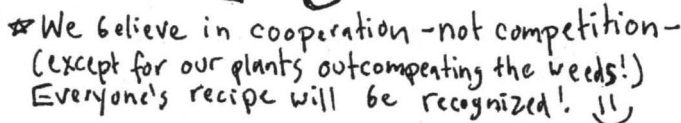 ☆ We believe in cooperation - not competition -
(except for our plants outcompeating the weeds!)
Everyone's recipe will be recognized!